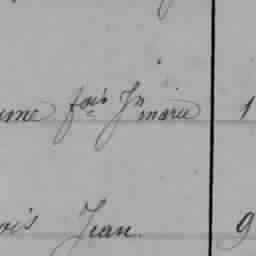 ume fois Jn marie 1
ois Jean. 9